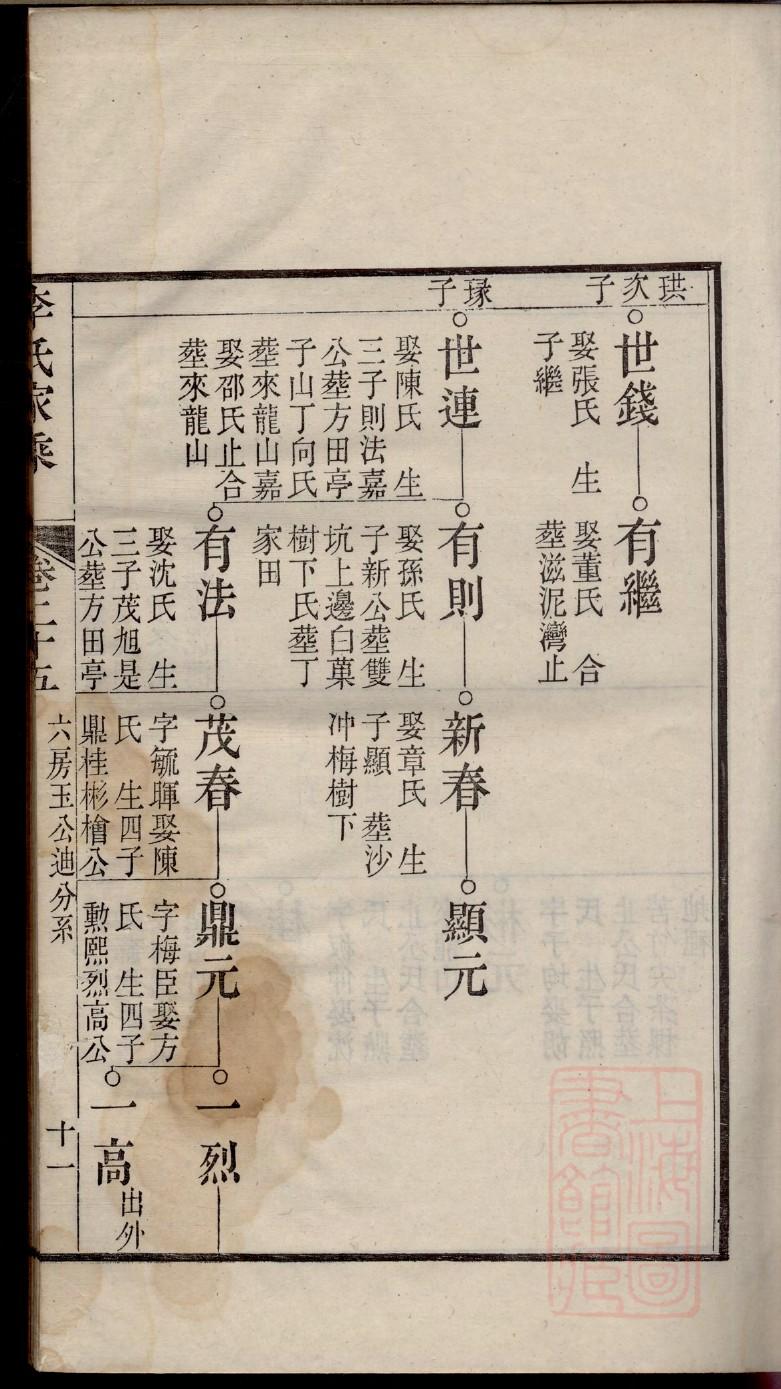 珙次子
世錢
娶張氏　生
子繼
有繼
娶董氏　合
塟滋泥灣止
琭子
世連
娶陳氏　生
三子則法嘉
公塟方田亭
子山丁向氏
塟來龍山嘉
娶邵氏止合
塟來龍山
有則
娶孫氏　生
子新公塟雙
坑上邊白菓
樹下氏塟丁
家田
新春
娶章氏　生
子顯　塟沙
冲梅樹下
顯元
有法
娶沈氏　生
三子茂旭是
公塟方田亭
茂春
字毓暉娶陳
氏　生四子
鼎桂彬檜公
鼎元
字梅臣娶方
氏　生四子
勳熙烈高公
一烈
一高
出外
李氏家乘
卷二十五
六房玉公迪分系
十一
上海圖書館藏